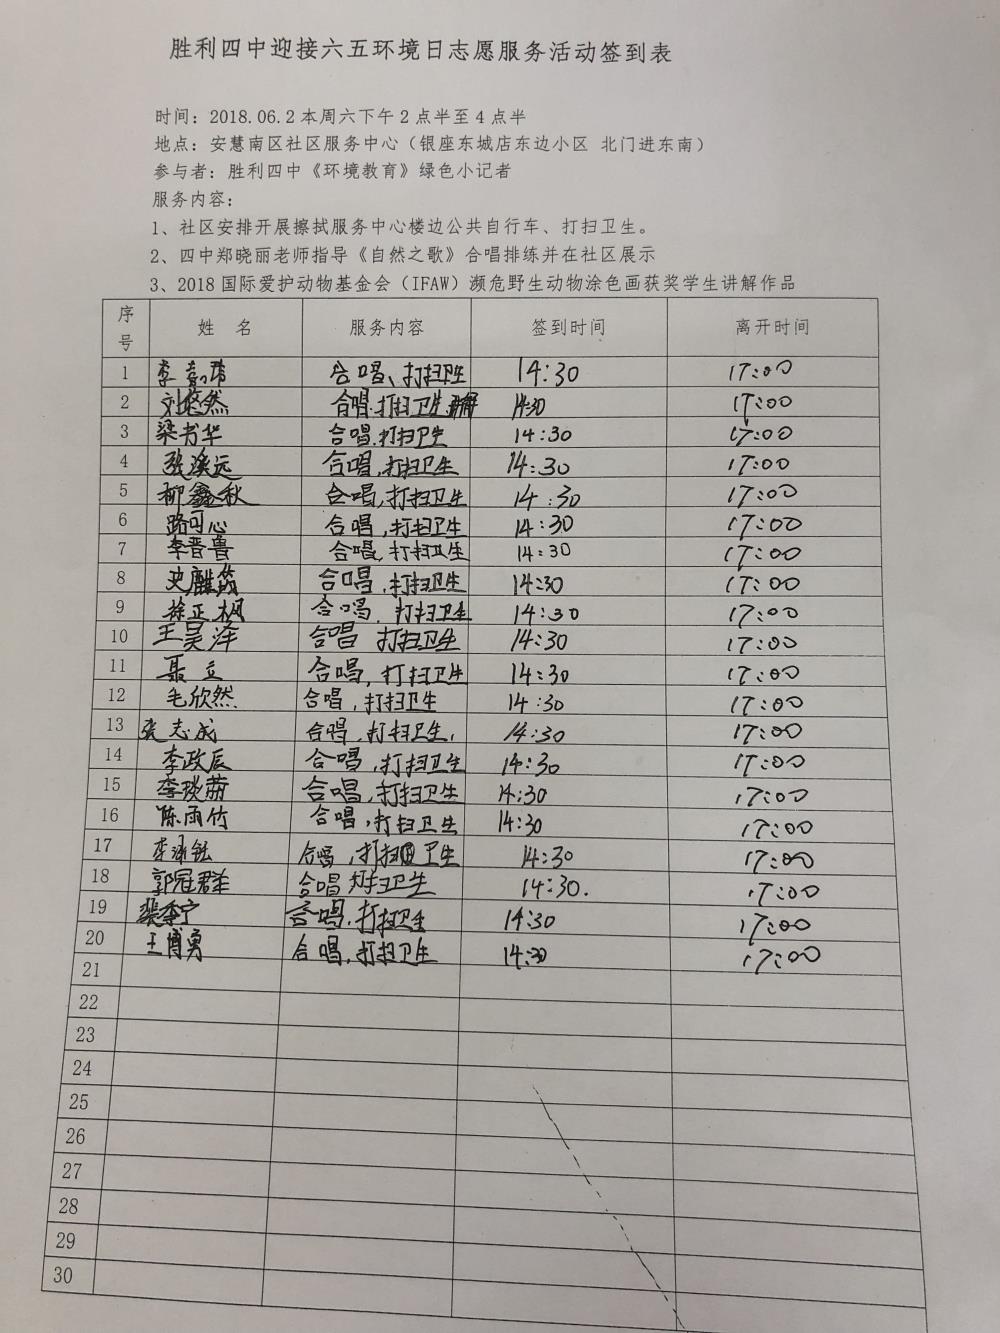 胜利四中迎接六五环境日志愿服务活动签到表
时间：2018.06.2本周六下午2点半至4点半
地点：安慧南区社区服务中心（银座东城店东边小区 北门进东南）
参与者：胜利四中《环境教育》绿色小记者
服务内容：
1、社区安排开展擦拭服务中心楼边公共自行车、打扫卫生。
2、四中郑晓丽老师指导《自然之歌》合唱排练并在社区展示
3、2018国际爱护动物基金会（IFAW）濒危野生动物涂色画获奖学生讲解作品
序号 姓 名 服务内容 签到时间 离开时间
1 李 合唱、打扫卫生 14:30 17:00
2 刘悠然 合唱.打扫卫生 14:30 17:00
3 梁书华 合唱.打扫卫生 14:30 17:00
4 张溪远 合唱,打扫卫生 14:30 17:00
5 柳鑫秋 合唱,打扫卫生 14:30 17:00
6 路可心 合唱,打扫卫生 14:30 17:00
7 李晋鲁 合唱,打扫卫生 14:30 17:00
8 史 合唱,打扫卫生 14:30 17:00
9 徐正枫 合唱,打扫卫生 14:30 17:00
10 王昊泽 合唱 打扫卫生 14:30 17:00
11 聂立 合唱,打扫卫生 14:30 17:00
12 毛欣然 合唱,打扫卫生 14:30 17:00
13 张志成 合唱,打扫卫生, 14:30 17:00
14 李政辰 合唱,打扫卫生 14:30 17:00
15 李琰 合唱,打扫卫生 14:30 17:00
16 陈雨竹 合唱,打扫卫生 14:30 17:00
17 李 合唱,打扫 卫生 14:30 17:00
18 郭冠群 合唱 打扫卫生 14:30. 17:00
19 裴李宁 合唱.打扫卫生 14:30 17:00
20 王博勇 合唱,打扫卫生 14:30 17:00
21
22
23
24
25
26
27
28
29
30